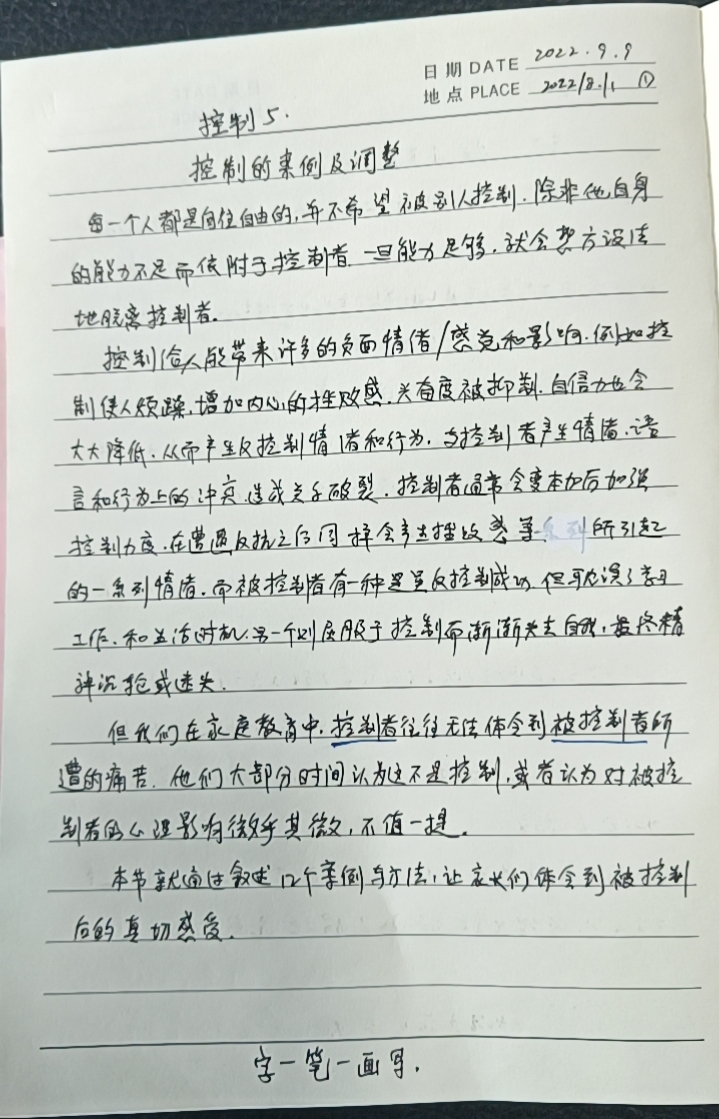 日期 DATE 2022.9.9
地点 PLACE 2022/8/1 ①
控制5.
控制的案例及调整
每一个人都是向往自由的,并不希望被别人控制.除非他自身
的能力不足而依附于控制者.一旦能力足够,就会想方设法
地脱离控制者.
控制给人能带来许多的负面情绪/感觉和影响.例如控
制使人烦躁,增加内心的挫败感.兴奋度被抑制.自信力也会
大大降低.从而产生反控制情绪和行为.与控制者产生情绪.语
言和行为上的冲突.造成关系破裂.控制者通常会变本加厉加强
控制力度.在遭遇反抗之后同样会产生挫败感等系列所引起
的一系列情绪.而被控制者有一种是虽反控制成功.但耽误了学习
工作.和生活时机.另一个则屈服于控制而渐渐失去自我,最终精
神沉沦或迷失.
但我们在家庭教育中.控制者往往无法体会到被控制者所
遭的痛苦.他们大部分时间认为这不是控制,或者认为对被控
制者的心理影响微乎其微,不值一提.
本节就通过叙述12个案例与方法,让家长们体会到被控制
后的真切感受.
字一笔一画写.